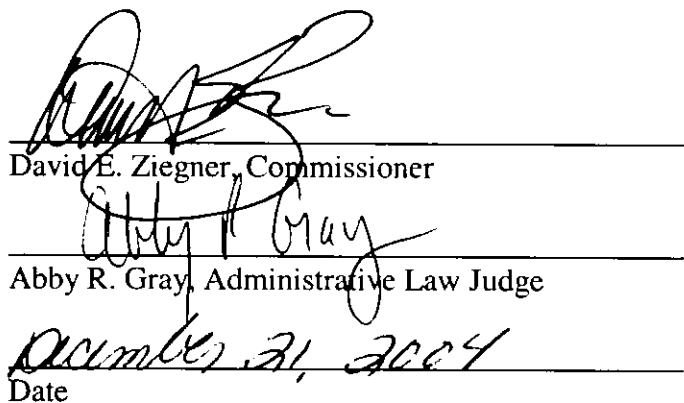 David E. Ziegner, Commissioner
Abby R Gray
Abby R. Gray, Administrative Law Judge
December 21, 2004
Date